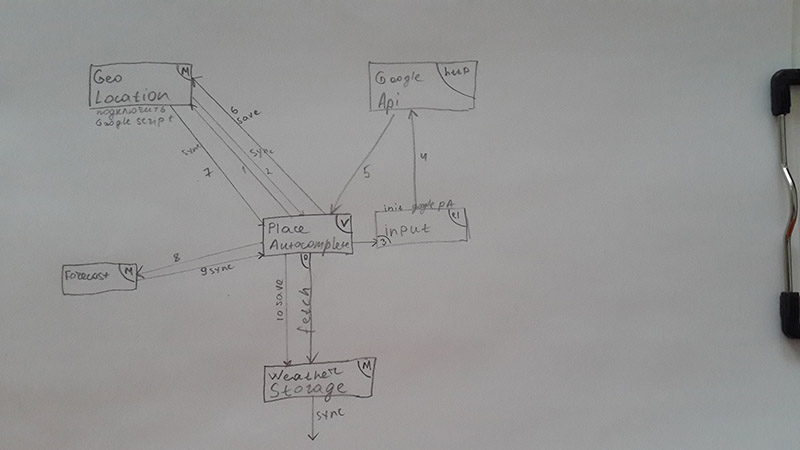 Geo
Location
M
подключить
Google script
Google
Api
http
6
save
sync
7
1
sync
2
5
4
init google PA
input
el
3
Place
Autocomplete
V
0
8
9 sync
Forecast
M
10 save
fetch
Weather
Storage
M
sync